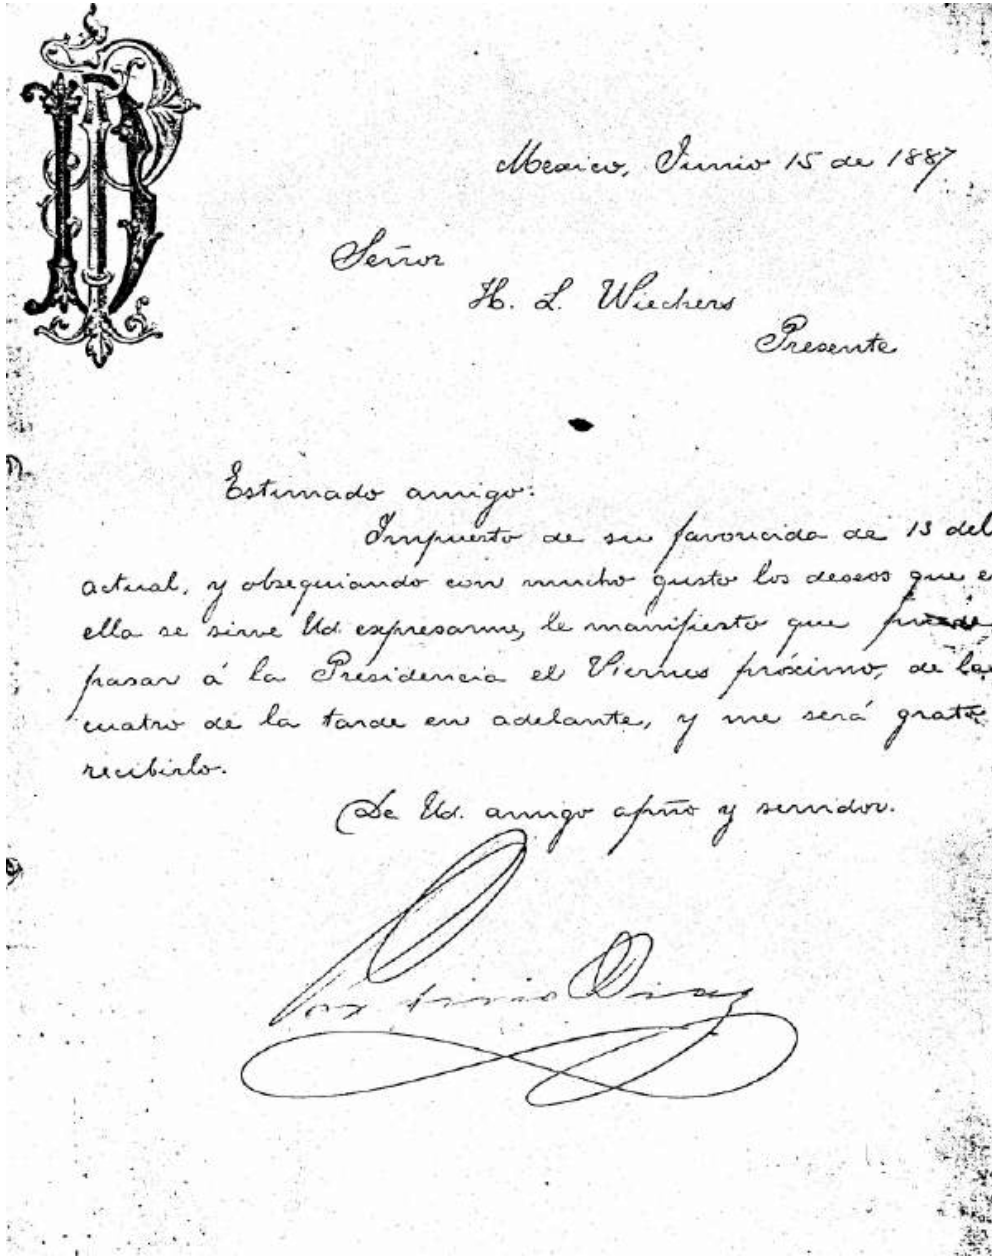 Mexico, Junio 15 de 1887
Señor
H. L. Wiechers
Presente
Estimado amigo:
Impuesto de su favorecida de 13 del
actual, y obsequiando con mucho gusto los deseos que e
ella se sirve Ud. expresarme, le manifiesto que puede
pasar á la Presidencia el Viernes próximo, de la
cuatro de la tarde en adelante, y me será grato
recibirlo.
De Ud. amigo afmo y servidor.
Porfirio Diaz